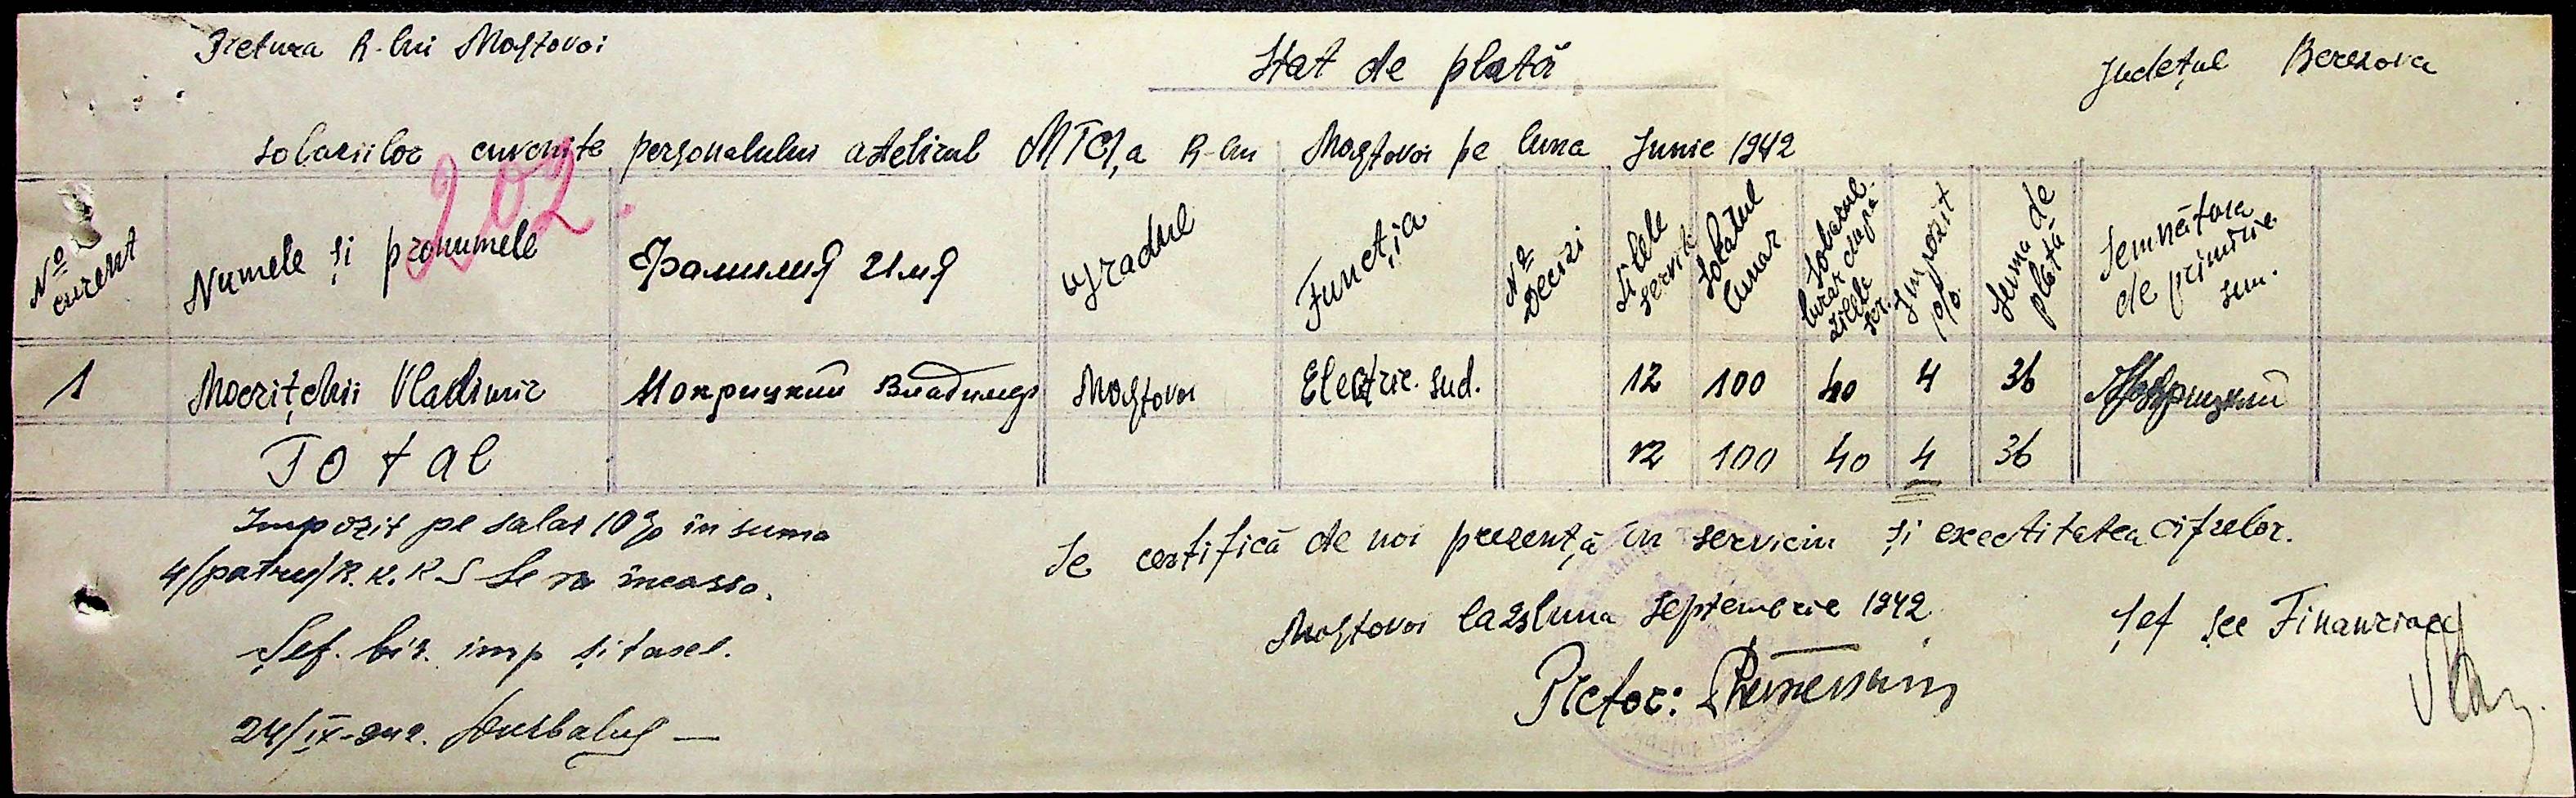 Pretura R-lui Mostovoi
Stat de plată
Județul Berezova
salariilor cuvenite personalului atelirul MTS, a R-lui Mostovoi pe luna Junie 1942
202
Nº curent
Numele și pronumele
Фамилия Имя
Gradul
Funcția
Nº Decizi
Zilele servite
Solariul lunar
Solariul lunar după zilele ser.
Impozit 10%
Suma de plată
Semnătura de primirie sum.
1 Mocrițchii Vladimir Мокрицкий Владимир Mostovoi Electric. sud. 12 100 40 4 36 Мокрицкий
Total 12 100 40 4 36
Impozit pe salar 10% în suma
4/patru/R.K.K S Se va incassa.
Șef. bir. imp și taxel.
24/IX-942.
Se certifică de noi prezența în serviciu și exectitatea cifrelor.
Mostovoi la 23 luna Septembrie 1942
Pretor:
Șef sec Financiar